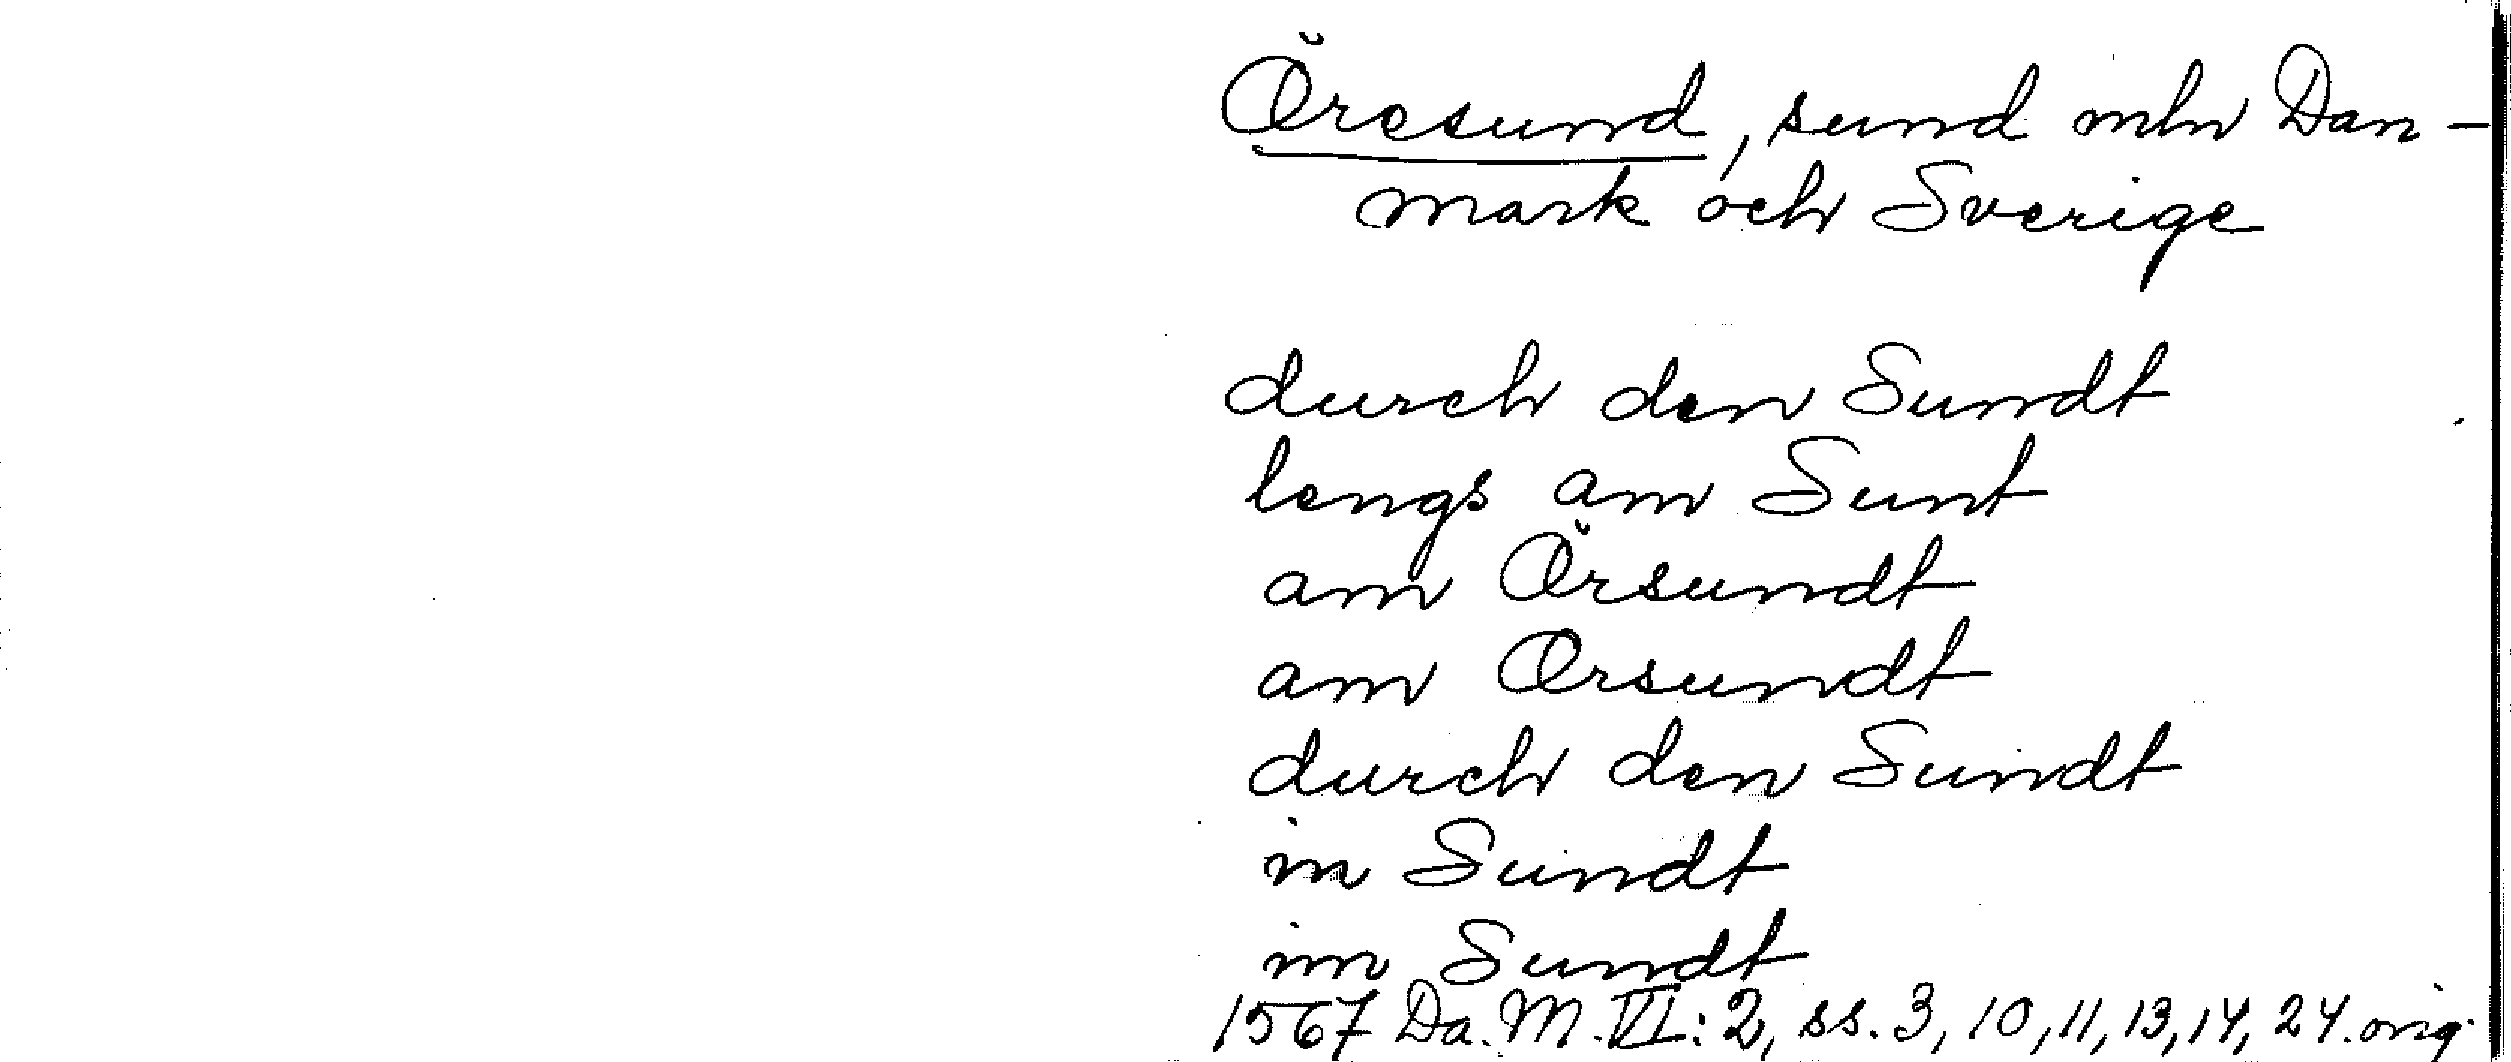 Öresund, sund mln Dan-
mark och Sverige
durch den Sundt
lengs am Sunt
am Örsundt
am Orsundt
durch den Sundt
in Sundt
im Sundt
1567 Da. M. VI: 2, ss. 3, 10, 11, 13, 14, 24. orig.